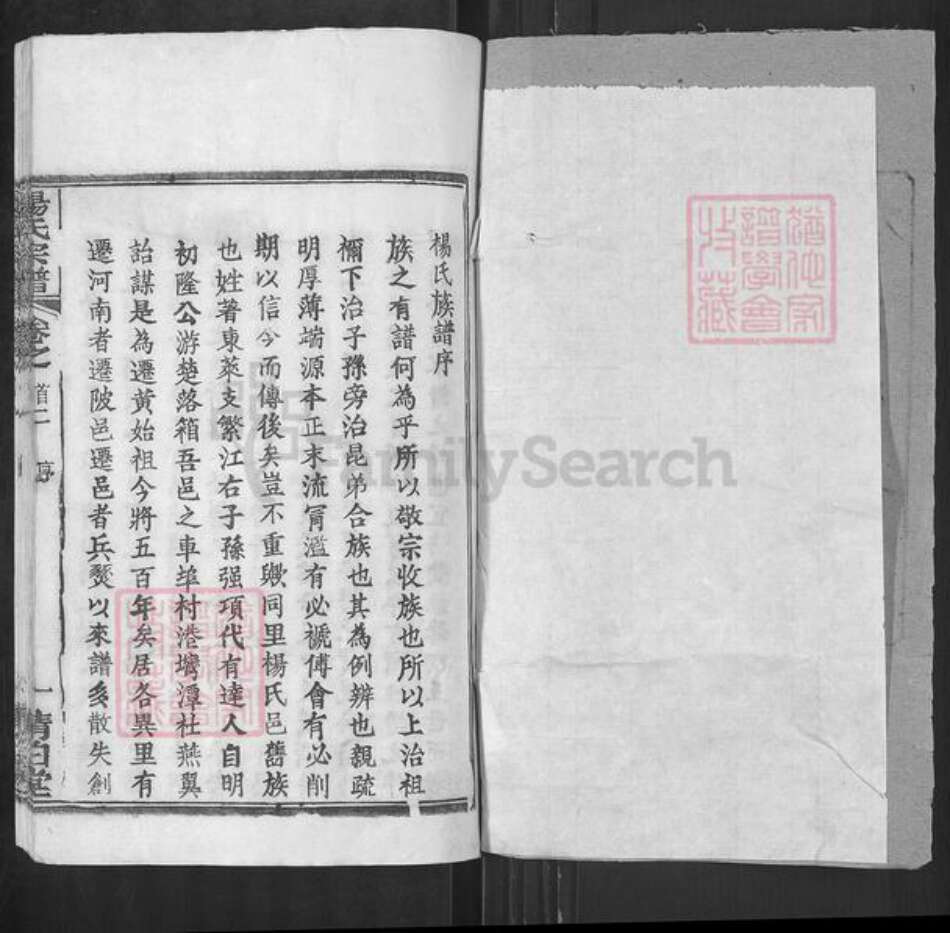 楊氏族譜序
族之有譜何為乎所以敬宗收族也所以上治祖
禰下治子孫旁治昆弟合族也其為例辨也親疏
明厚薄端源本正末流冐濫有必褫傅會有必削
期以信今而傳後矣豈不重歟同里楊氏邑舊族
也姓著東萊支繁江右子孫强項代有達人自明
初隆公游楚落箱吾邑之車埠村港塆潭杜燕翼
詒謀是為遷黄始祖今將五百年矣居各異里有
遷河南者遷陂邑遷邑者兵燹以來譜多散失創
楊氏宗譜 卷之首二 序 一 清白堂
譜學會
收藏
FamilySearch